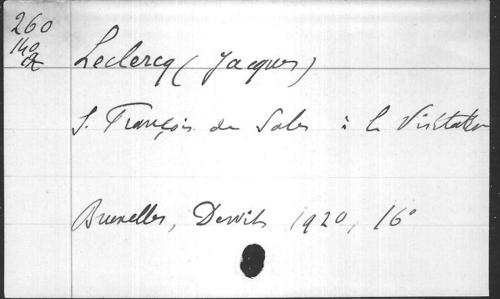 260
140
A
Leclercq (Jacques)
S. François de Sales à la Visitation
Bruxelles, Dewit 1920, 16°